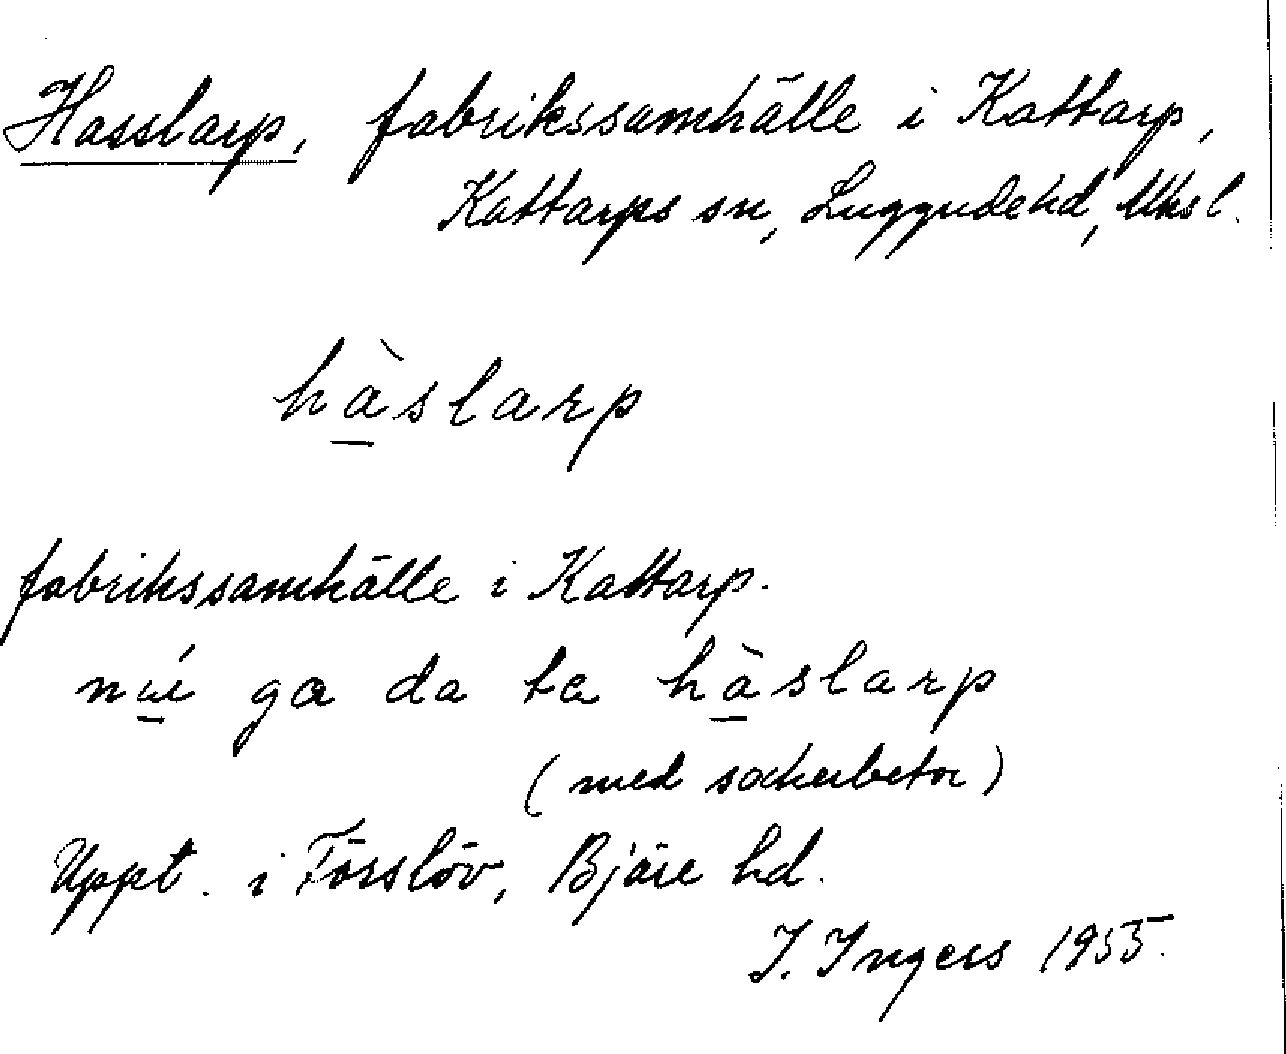 Hasslarp, fabrikssamhälle i Kattarp,
Kattarps sn, Luggude hd, Mhs l.
hàslarp
fabrikssamhälle i Kattarp.
ga da ta hàslarp
(med sockerbetor)
Uppt. i Förslöv, Bjäre hd.
I. Ingers 1955.